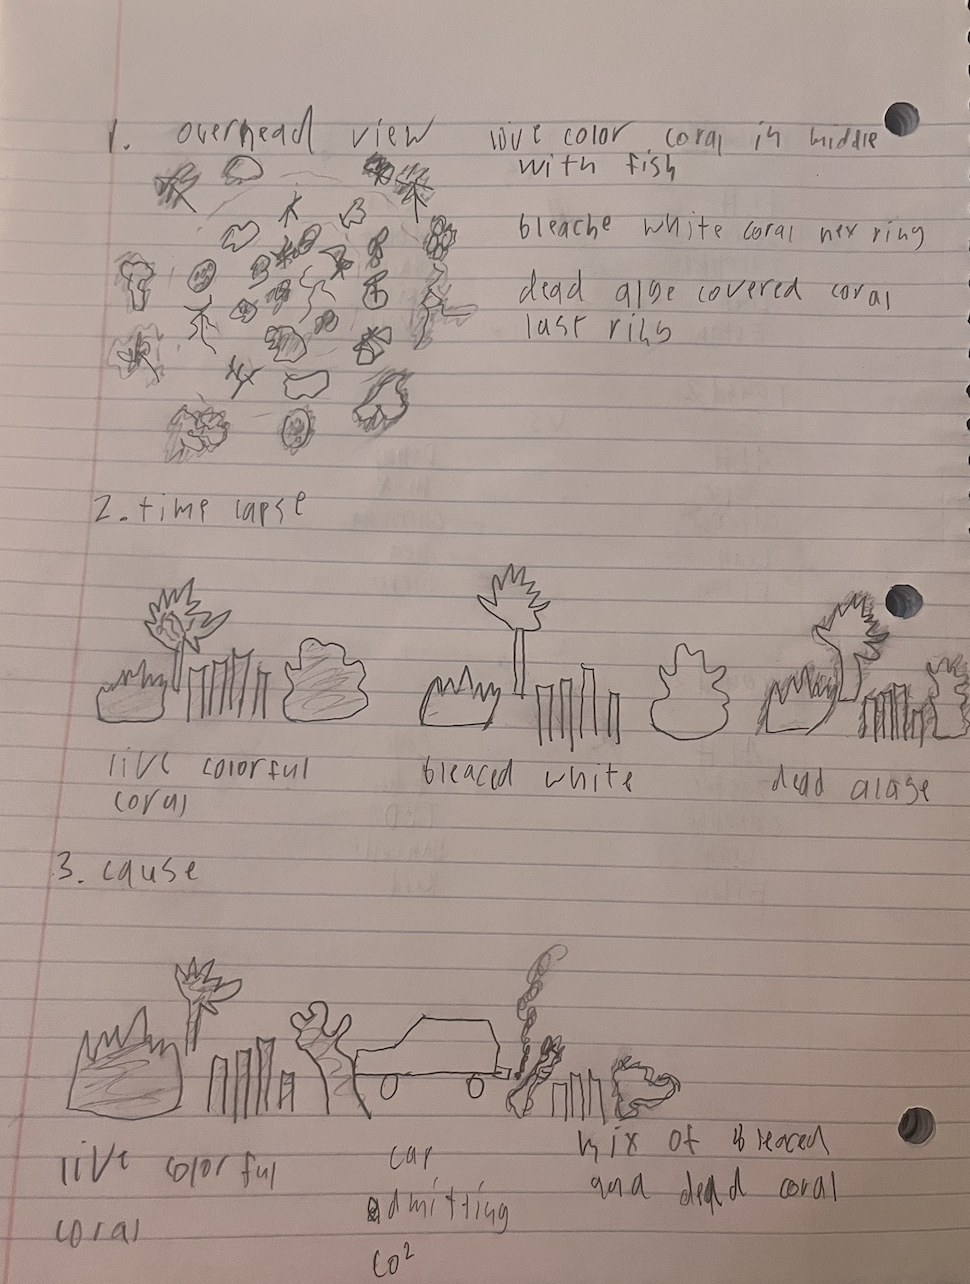 1. overhead view
live color coral in middle
with fish
bleache white coral nex ring
dead alge covered coral
last ring
2. time lapse
live colorful
coral
bleaced white
dead alage
3. cause
live colorful
coral
car
admitting
co²
mix of bleaced
and dead coral